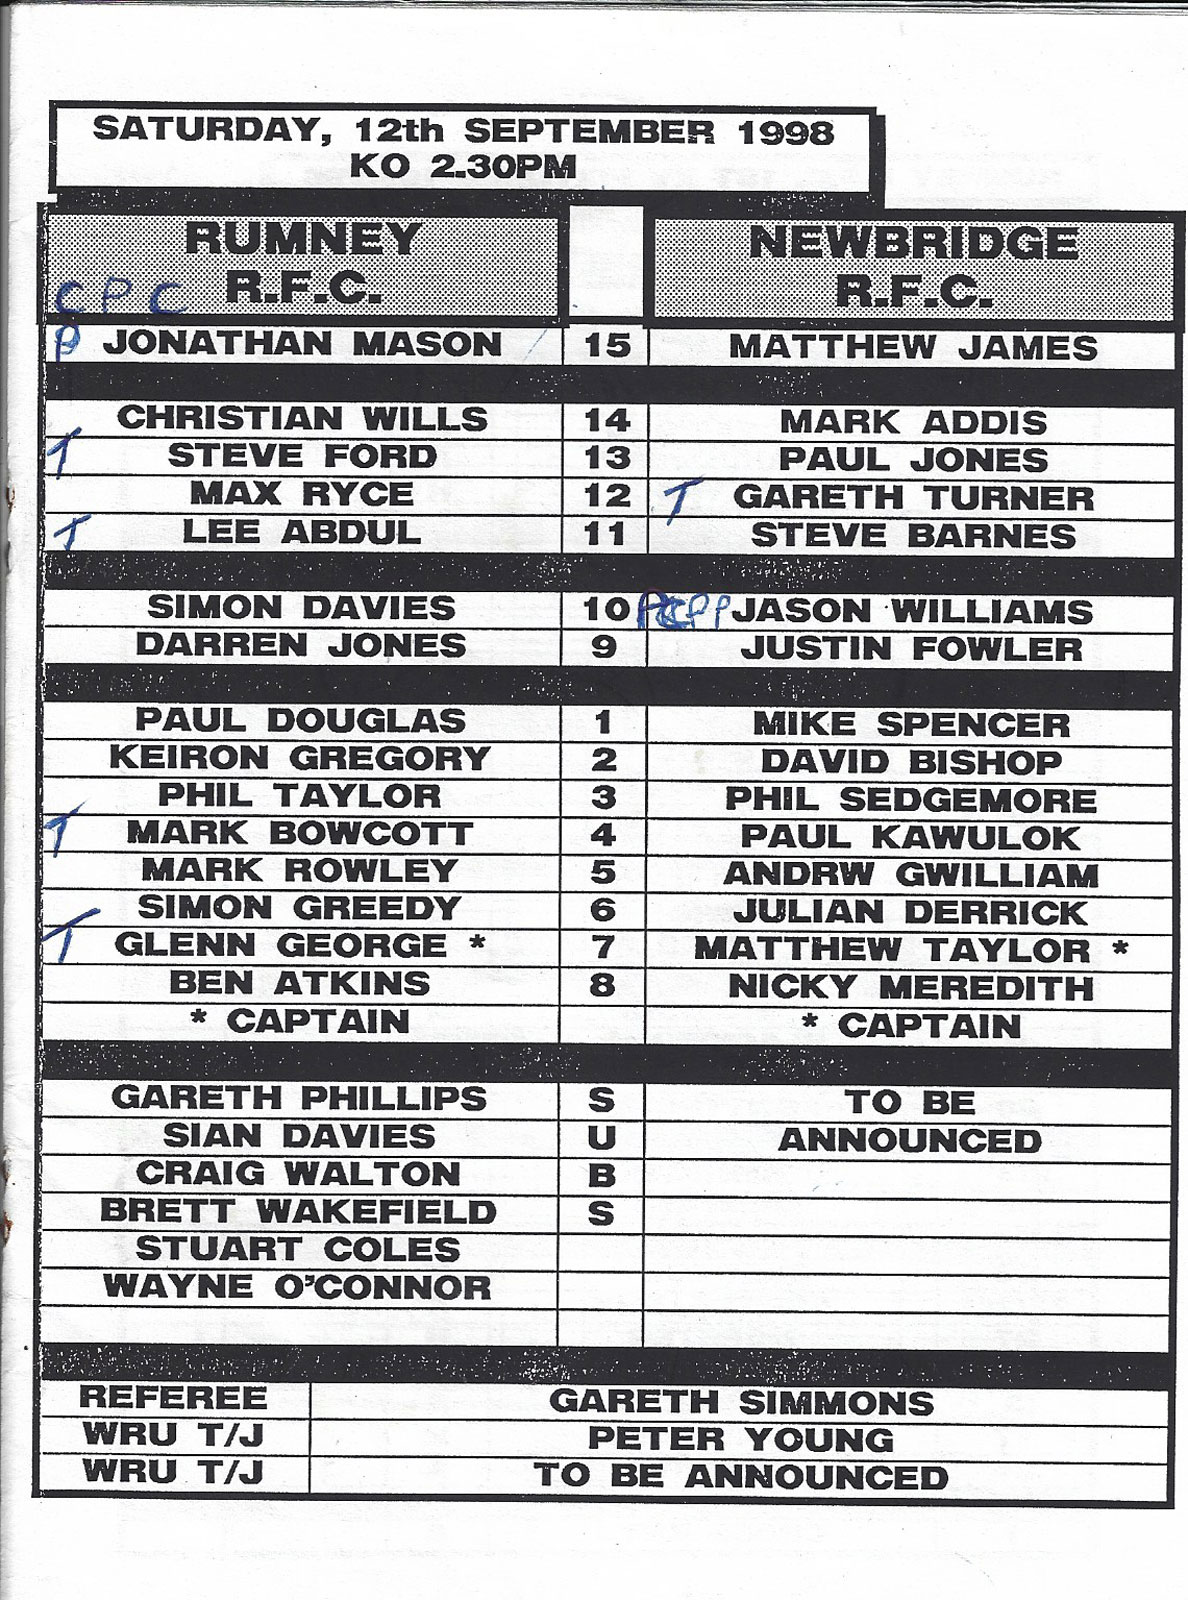 SATURDAY, 12th SEPTEMBER 1998
KO 2.30PM
RUMNEY R.F.C.
NEWBRIDGE R.F.C.
C P C
P JONATHAN MASON 15 MATTHEW JAMES
CHRISTIAN WILLS 14 MARK ADDIS
T STEVE FORD 13 PAUL JONES
MAX RYCE 12 T GARETH TURNER
T LEE ABDUL 11 STEVE BARNES
SIMON DAVIES 10 PP JASON WILLIAMS
DARREN JONES 9 JUSTIN FOWLER
PAUL DOUGLAS 1 MIKE SPENCER
KEIRON GREGORY 2 DAVID BISHOP
PHIL TAYLOR 3 PHIL SEDGEMORE
T MARK BOWCOTT 4 PAUL KAWULOK
MARK ROWLEY 5 ANDRW GWILLIAM
SIMON GREEDY 6 JULIAN DERRICK
T GLENN GEORGE * 7 MATTHEW TAYLOR *
BEN ATKINS 8 NICKY MEREDITH
* CAPTAIN * CAPTAIN
GARETH PHILLIPS S TO BE
SIAN DAVIES U ANNOUNCED
CRAIG WALTON B
BRETT WAKEFIELD S
STUART COLES
WAYNE O'CONNOR
REFEREE GARETH SIMMONS
WRU T/J PETER YOUNG
WRU T/J TO BE ANNOUNCED